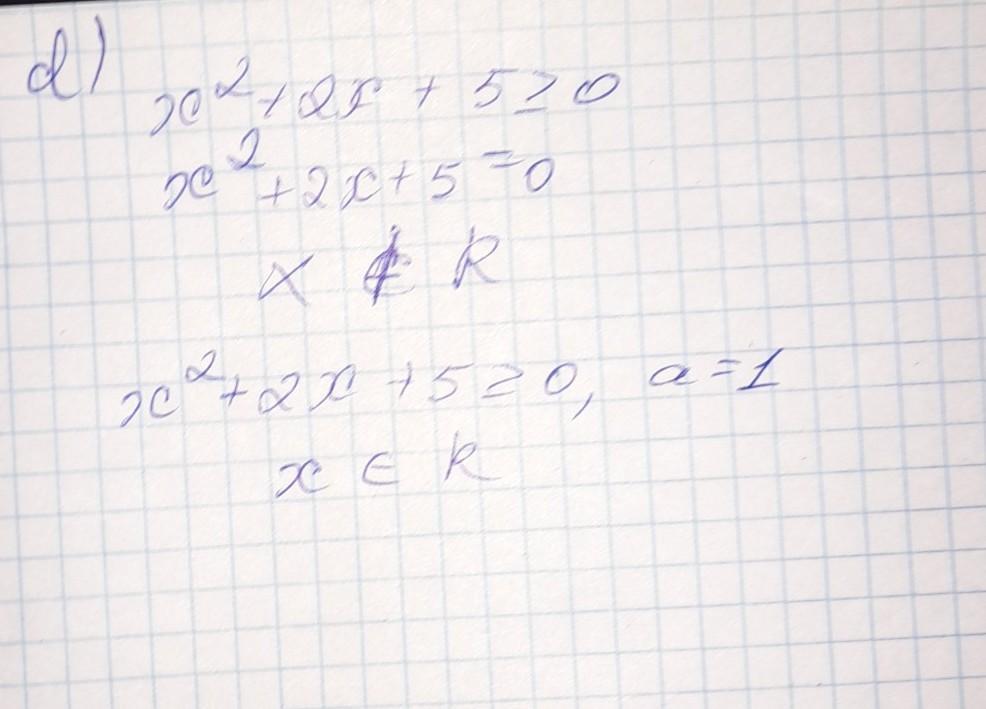 d) x² + 2x + 5 ≥ 0
x² + 2x + 5 = 0
x ∉ R
x² + 2x + 5 ≥ 0, a = 1
x ∈ R